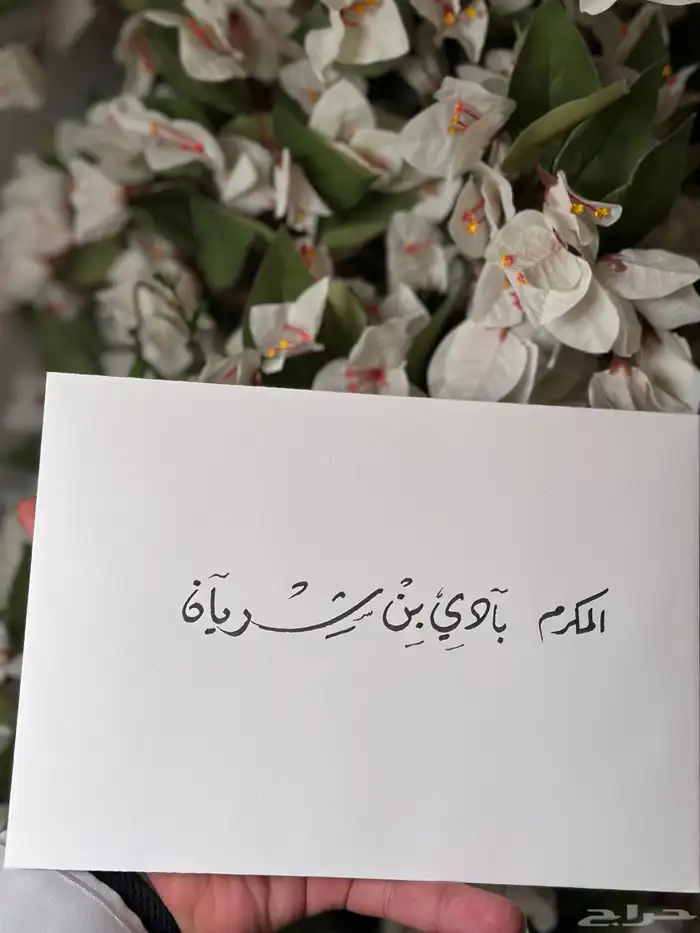 المكرم بآدي بن شريآن
حراج